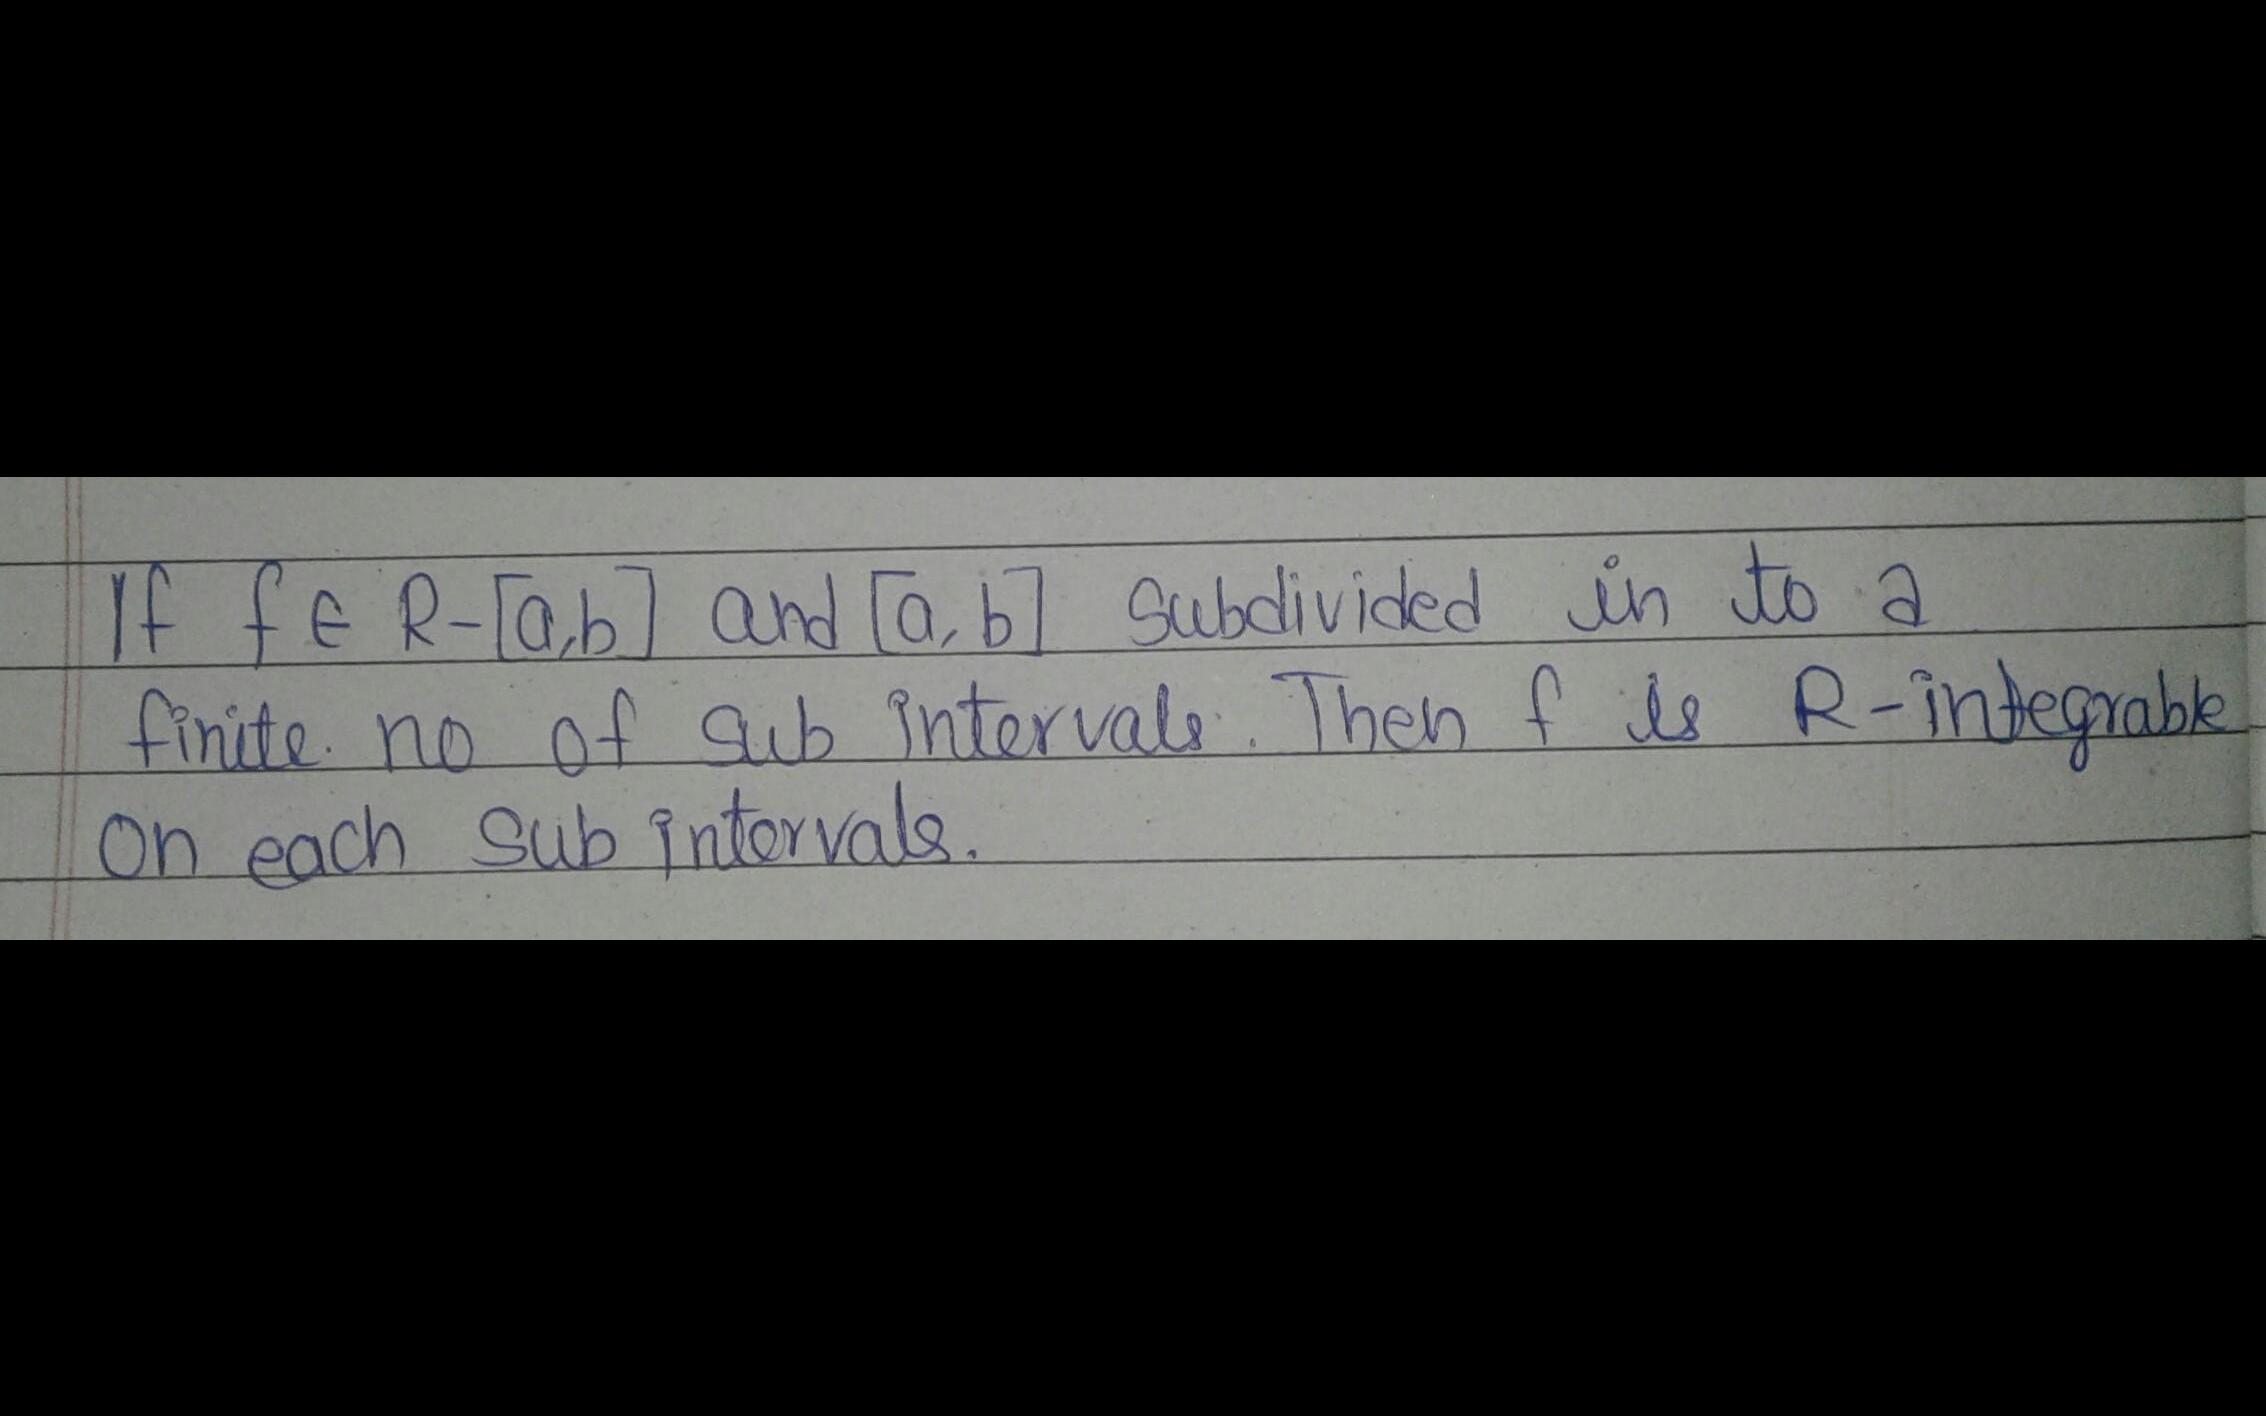 If f ∈ R-[a,b] and [a,b] subdivided in to a
finite no of sub intervals. Then f is R-integrable
on each sub intervals.